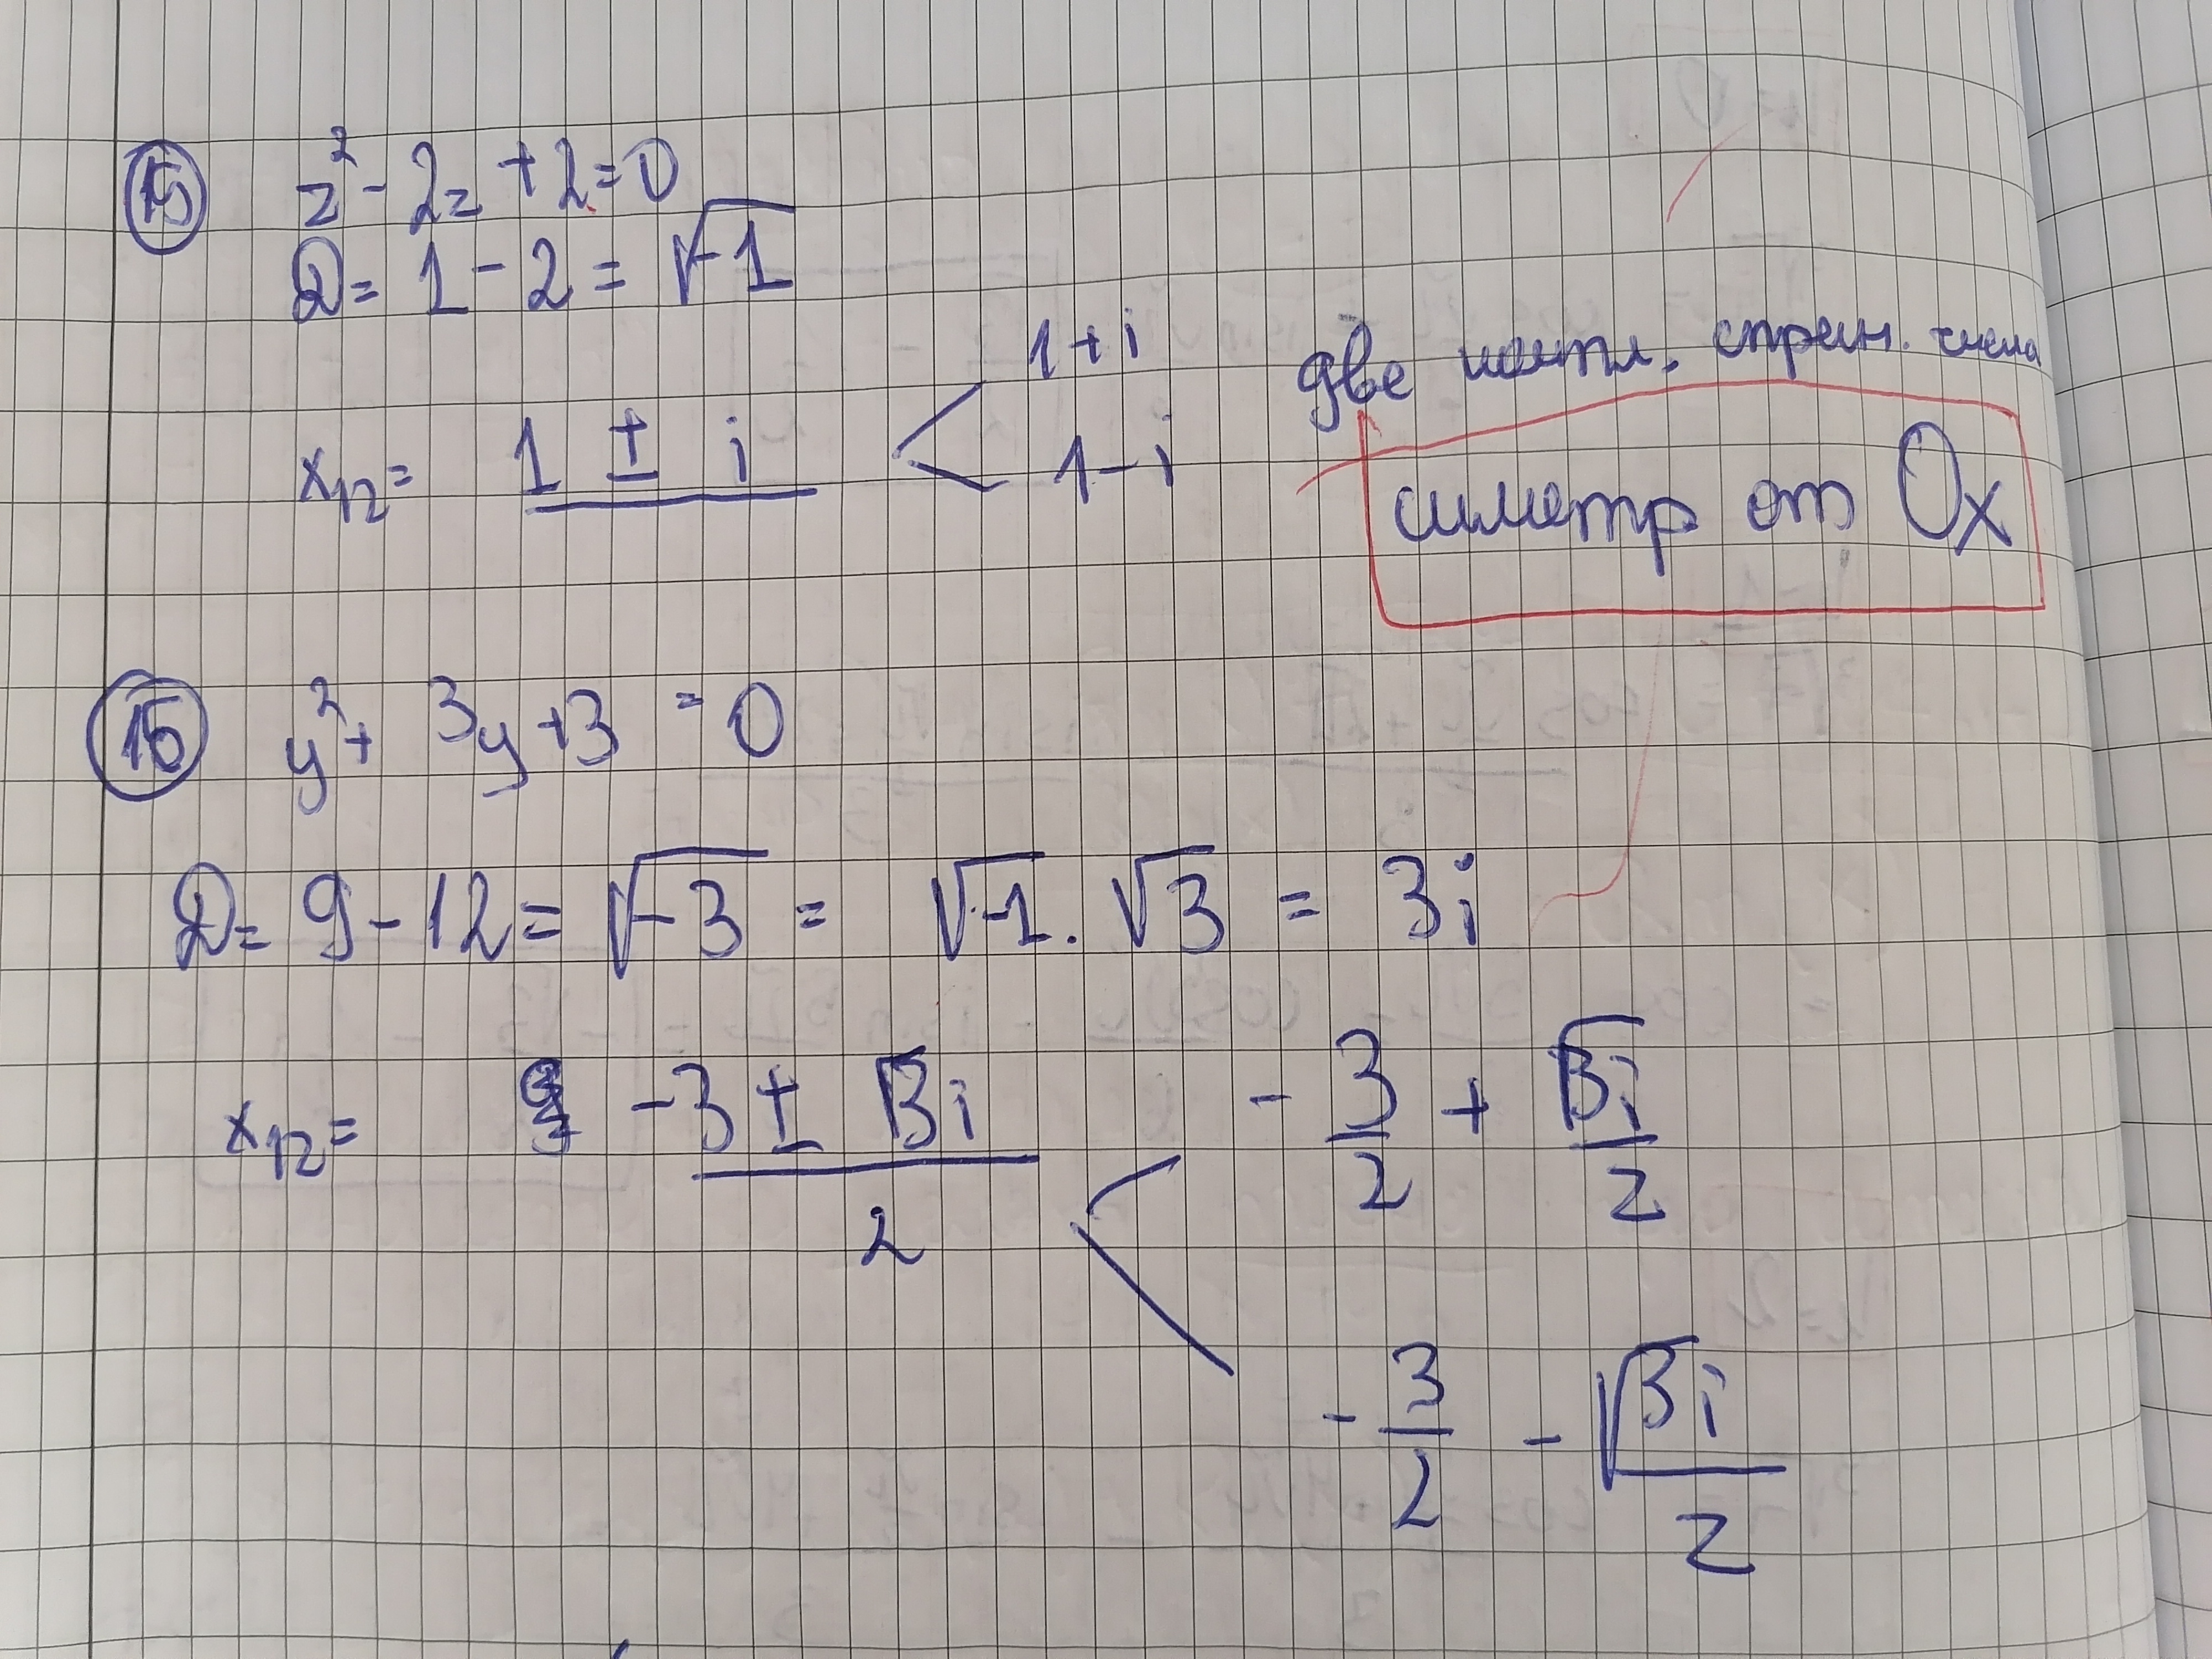 15 z² - 2z + 2 = 0
D = 1 - 2 = √-1
x₁₂ = 1 ± i < 1 + i две компл. спрен. числа
1 - i симетр от Ox
16 y² + 3y + 3 = 0
D = 9 - 12 = √-3 = √-1 . √3 = 3i
x₁₂ = -3 ± √3i / 2 < - 3/2 + √3i/2
- 3/2 - √3i/2